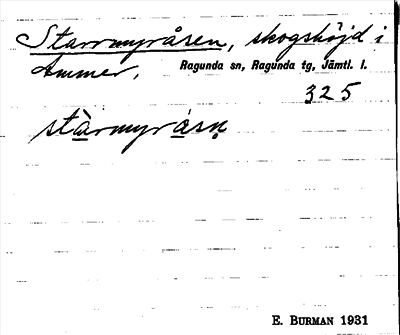 Starrmyråsen, skogshöjd i
Ammer, Ragunda sn, Ragunda tg, Jämtl. l.
325
stàrmyråsn̥
E. BURMAN 1931